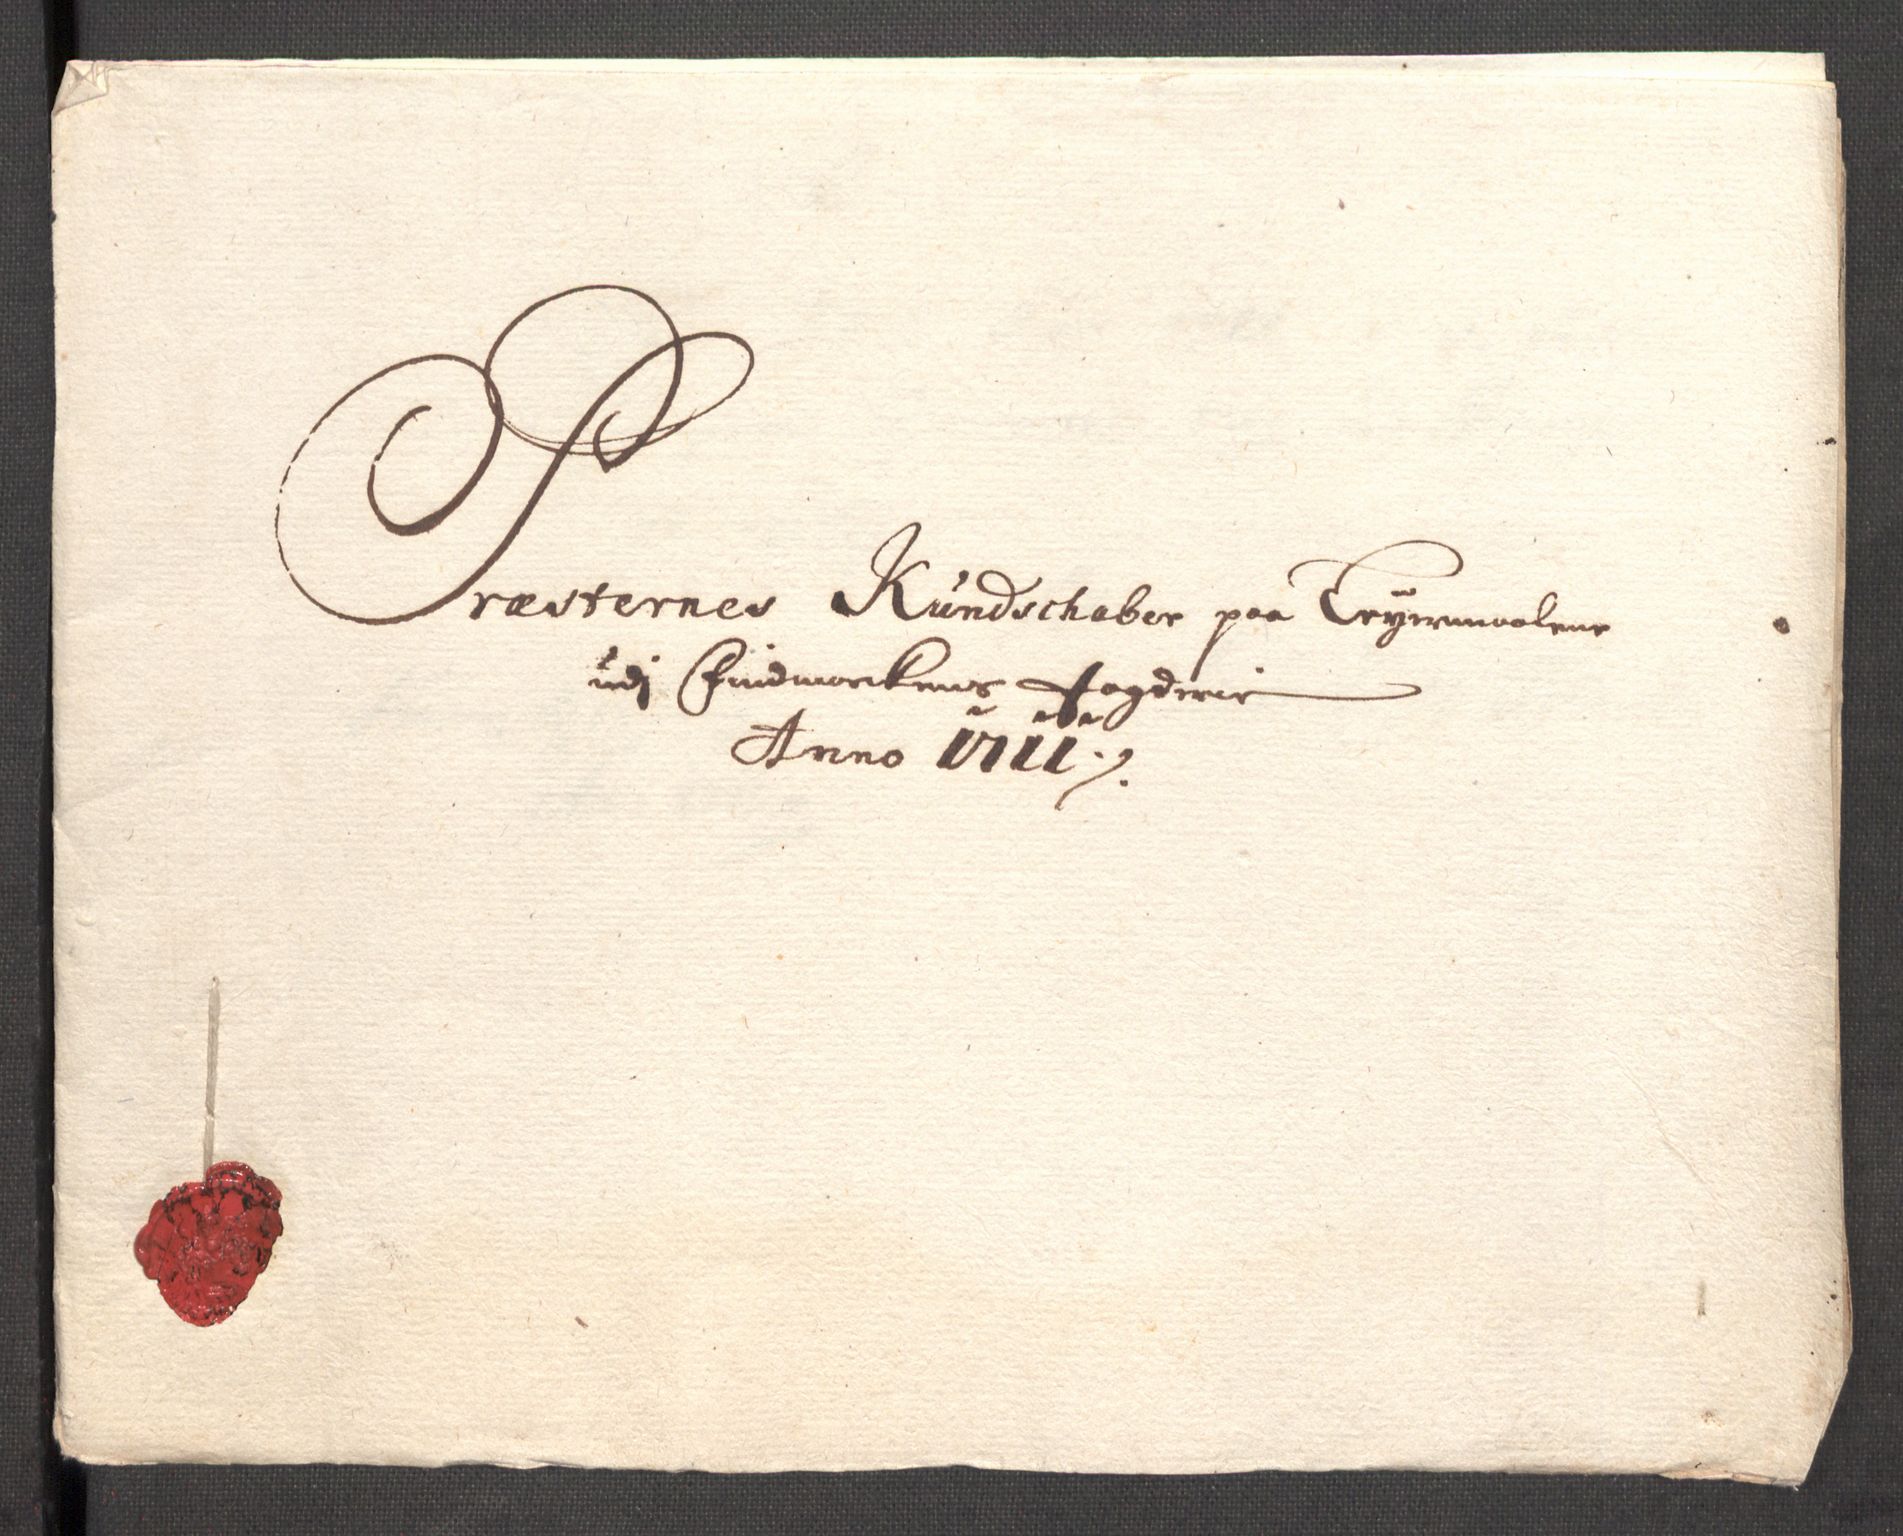 Præsternes Kundschaber paa Leyermaalene
udj Findmarkens Fogderie
Anno 1711 ./.